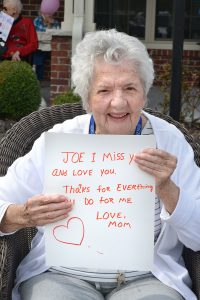 JOE I MISS y
AND LOVE YOU.
Thanks for EVERYthing
U DO FOR ME
LOVE,
Mom